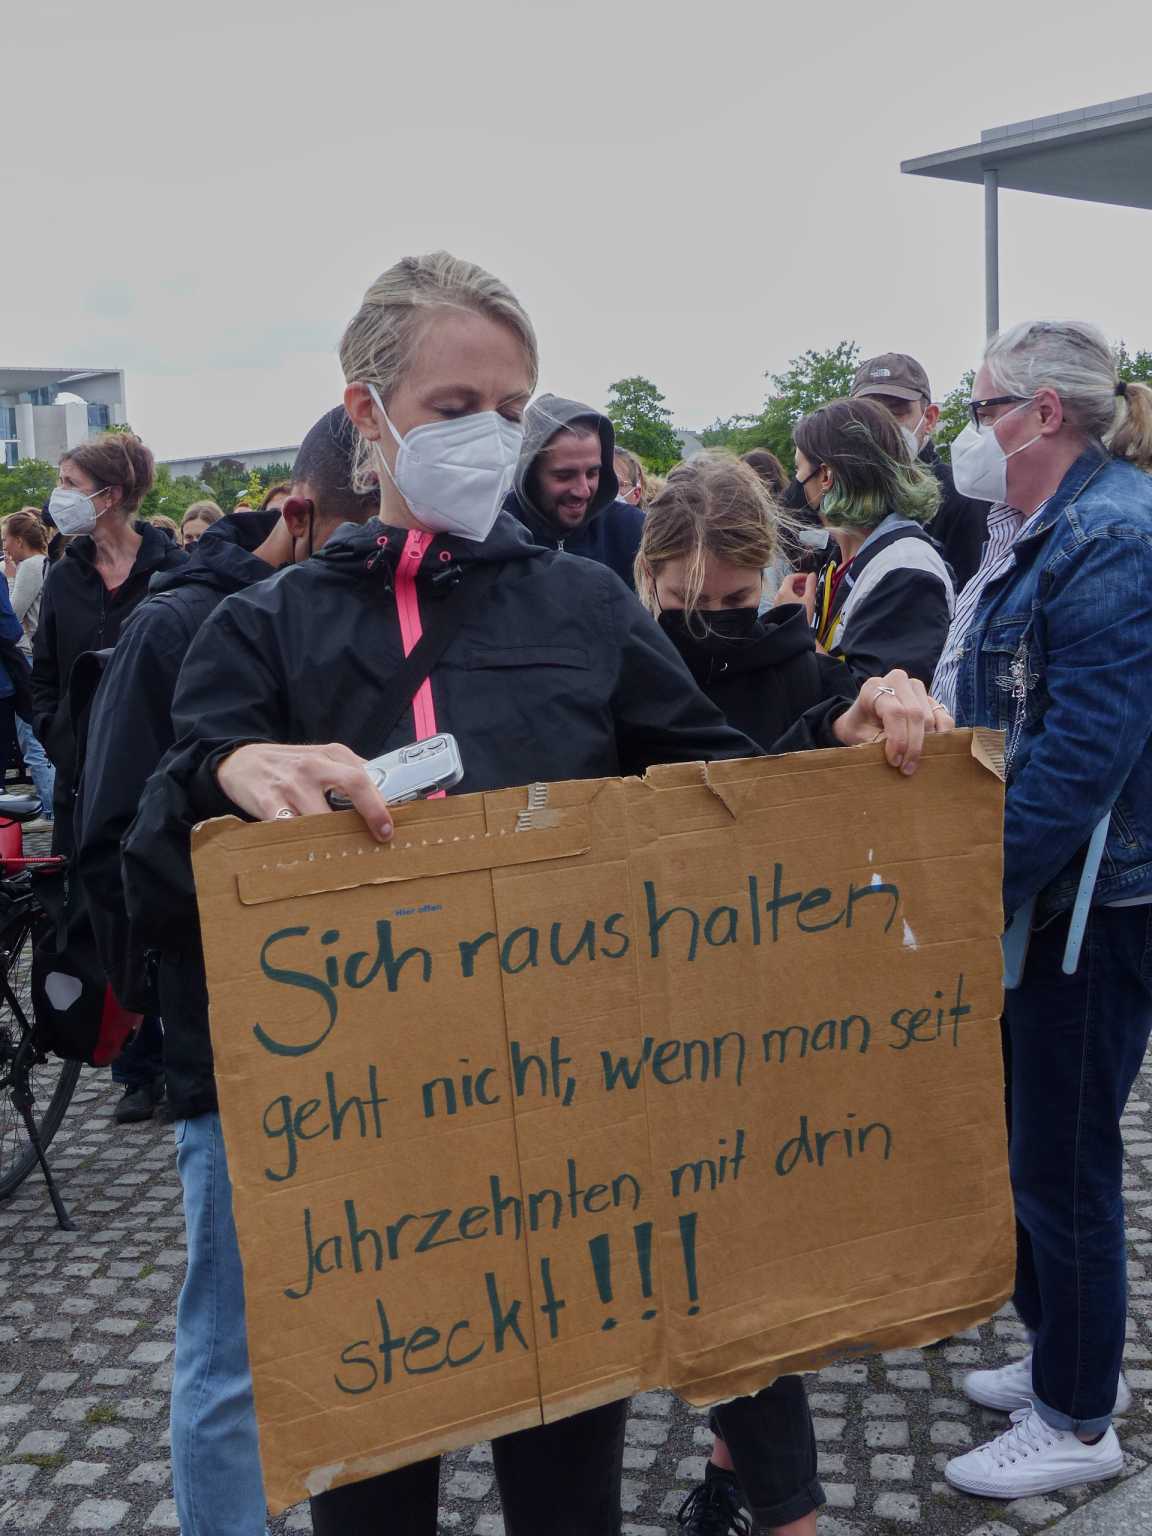 THE NORTH FACE
Hier öffnen
Sich raushalten
geht nicht, wenn man seit
Jahrzehnten mit drin
steckt!!!